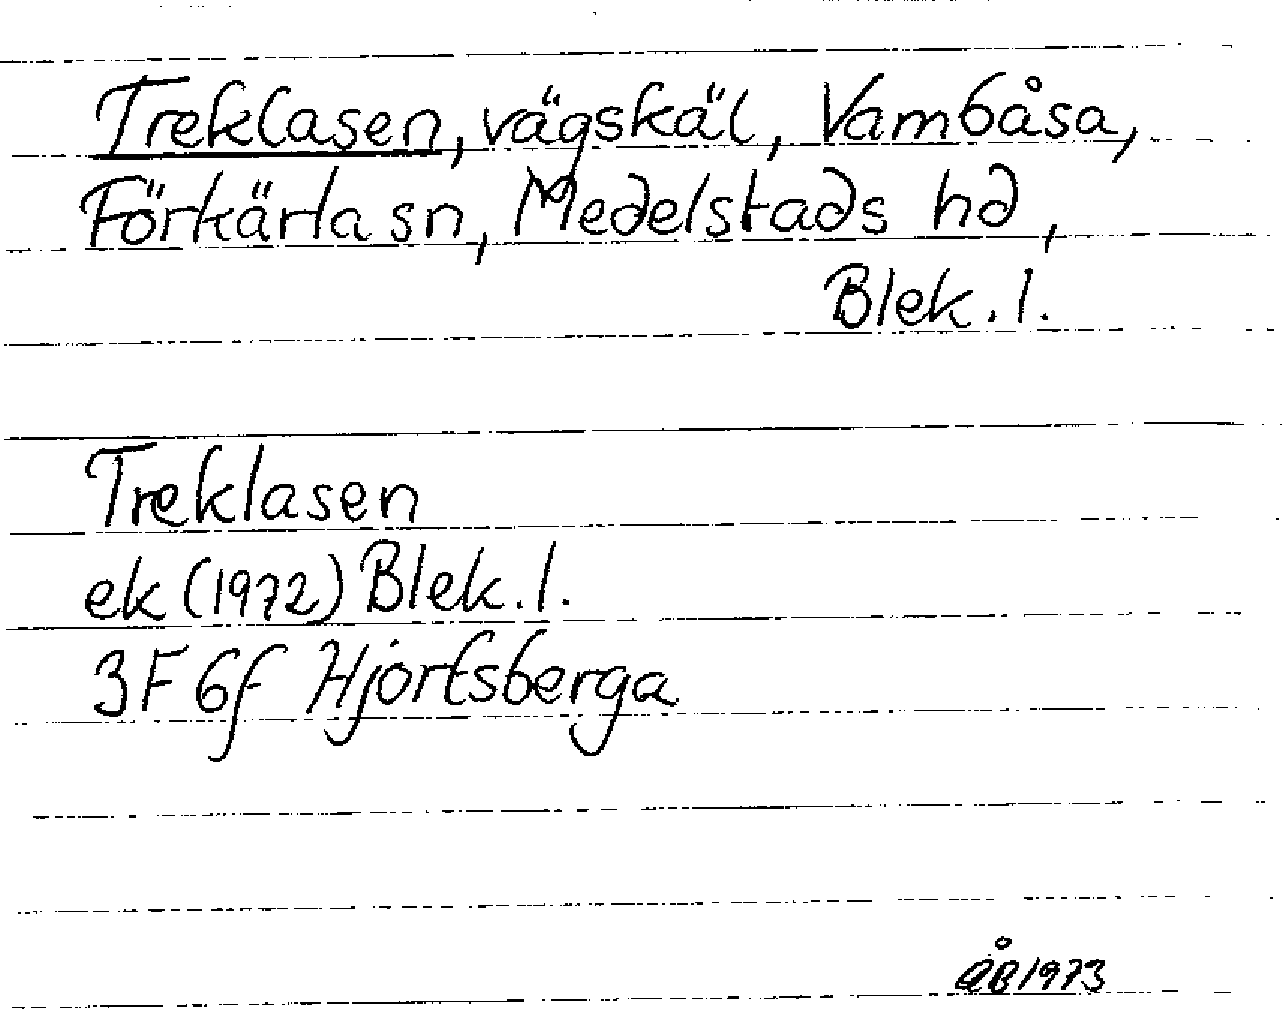 Treklasen, vägskäl, Vambåsa,
Förkärla sn, Medelstads hd,
Blek. l.
Treklasen
ek (1972) Blek. l.
3F 6f Hjortsberga
ÅB 1973